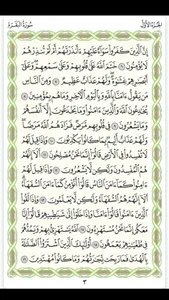 سورة البقرة الجزء الأول
إن الذين كفروا سواء عليهم ءأنذرتهم أم لم تنذرهم
لا يؤمنون ٦ ختم الله على قلوبهم وعلى سمعهم وعلى
أبصرهم غشوة ولهم عذاب عظيم ٧ ومن الناس
من يقول ءامنا بالله وباليوم الءاخر وما هم بمؤمنين ٨
يخدعون الله والذين ءامنوا وما يخدعون إلا أنفسهم
وما يشعرون ٩ في قلوبهم مرض فزادهم الله مرضا
ولهم عذاب أليم بما كانوا يكذبون ١٠ وإذا قيل لهم
لا تفسدوا في الأرض قالوا إنما نحن مصلحون ١١
ألا إنهم هم المفسدون ولكن لا يشعرون ١٢ وإذا قيل لهم
ءامنوا كما ءامن الناس قالوا أنؤمن كما ءامن السفهاء
ألا إنهم هم السفهاء ولكن لا يعلمون ١٣ وإذا لقوا
الذين ءامنوا قالوا ءامنا وإذا خلوا إلى شيطينهم قالوا إنا
معكم إنما نحن مستهزءون ١٤ الله يستهزئ بهم ويمدهم
في طغينهم يعمهون ١٥ أولئك الذين اشتروا الضللة
بالهدى فما ربحت تجرتهم وما كانوا مهتدين ١٦
٣